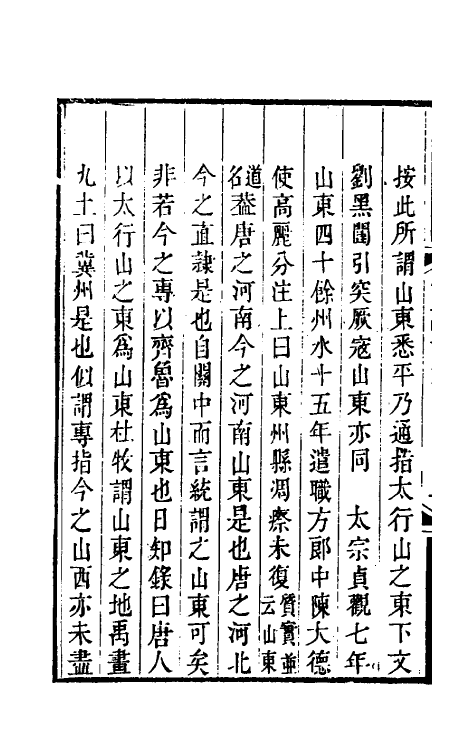 按此所謂山東悉平乃通指太行山之東下文
劉黑闥引突厥寇山東亦同　太宗貞觀七年
山東四十餘州水十五年遣職方郎中陳大德
使高麗分注上曰山東州縣凋瘵未復質實並云山東
道名葢唐之河南今之河南山東是也唐之河北
今之直隷是也自關中而言統謂之山東可矣
非若今之專以齊魯爲山東也日知錄曰唐人
以太行山之東爲山東杜牧謂山東之地禹畫
九土曰冀州是也似謂專指今之山西亦未盡